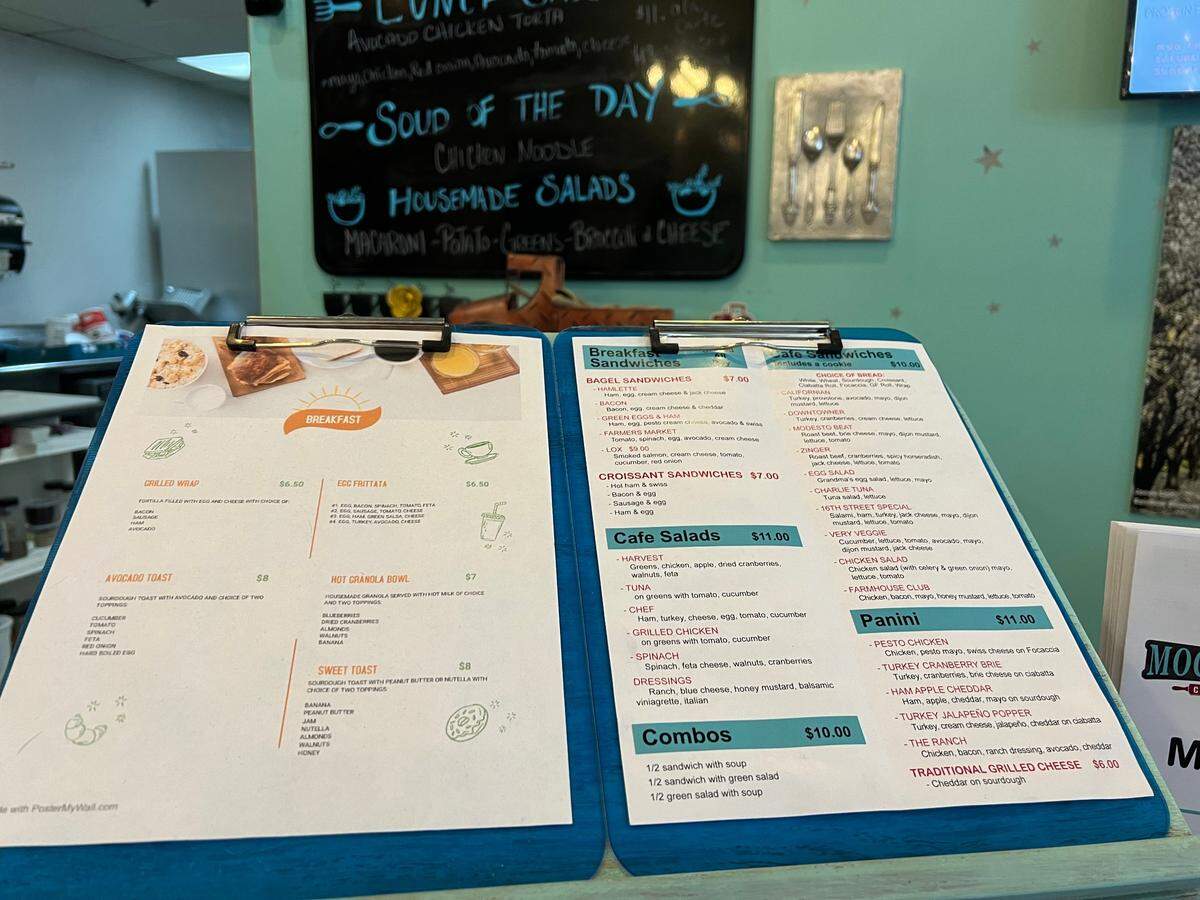 AVOCADO CHICKEN TORTA
SOUP OF THE DAY
CHICKEN NOODLE
HOUSEMADE SALADS
MACARONI - POTATO - GREENS - BROCCOLI & CHEESE
BREAKFAST
GRILLED WRAP $6.50
TORTILLA FILLED WITH EGG AND CHEESE WITH CHOICE OF:
BACON
SAUSAGE
HAM
AVOCADO
EGG FRITTATA $6.50
#1. EGG, BACON, SPINACH, TOMATO, FETA
#2. EGG, SAUSAGE, TOMATO CHEESE
#3. EGG, HAM, GREEN SALSA, CHEESE
#4. EGG, TURKEY, AVOCADO, CHEESE
AVOCADO TOAST $8
SOURDOUGH TOAST WITH AVOCADO AND CHOICE OF TWO
TOPPINGS:
CUCUMBER
TOMATO
SPINACH
FETA
RED ONION
HARD BOILED EGG
HOT GRANOLA BOWL $7
HOUSEMADE GRANOLA SERVED WITH HOT MILK OF CHOICE
AND TWO TOPPINGS:
BLUEBERRIES
DRIED CRANBERRIES
ALMONDS
WALNUTS
BANANA
SWEET TOAST $8
SOURDOUGH TOAST WITH PEANUT BUTTER OR NUTELLA WITH
CHOICE OF TWO TOPPINGS
BANANA
PEANUT BUTTER
JAM
NUTELLA
ALMONDS
WALNUTS
HONEY
de with PosterMyWall.com
Breakfast
Sandwiches
BAGEL SANDWICHES $7.00
- HAMLETTE
Ham, egg, cream cheese & jack cheese
- BACON
Bacon, egg, cream cheese & cheddar
- GREEN EGGS & HAM
Ham, egg, pesto cream cheese, avocado & swiss
- FARMERS MARKET
Tomato, spinach, egg, avocado, cream cheese
- LOX $9.00
Smoked salmon, cream cheese, tomato,
cucumber, red onion
CROISSANT SANDWICHES $7.00
- Hot ham & swiss
- Bacon & egg
- Sausage & egg
- Ham & egg
Cafe Salads $11.00
- HARVEST
Greens, chicken, apple, dried cranberries,
walnuts, feta
- TUNA
on greens with tomato, cucumber
- CHEF
Ham, turkey, cheese, egg, tomato, cucumber
- GRILLED CHICKEN
on greens with tomato, cucumber
- SPINACH
Spinach, feta cheese, walnuts, cranberries
DRESSINGS
Ranch, blue cheese, honey mustard, balsamic
vinaigrette, italian
Combos $10.00
1/2 sandwich with soup
1/2 sandwich with green salad
1/2 green salad with soup
Cafe Sandwiches
includes a cookie $10.00
CHOICE OF BREAD:
White, Wheat, Sourdough, Croissant,
Ciabatta Roll, Focaccia, GF Roll, Wrap
- CALIFORNIAN
Turkey, provolone, avocado, mayo, dijon
mustard, lettuce
- DOWNTOWNER
Turkey, cranberries, cream cheese, lettuce
- MODESTO BEAT
Roast beef, brie cheese, mayo, dijon mustard,
lettuce, tomato
- ZINGER
Roast beef, cranberries, spicy horseradish,
jack cheese, lettuce, tomato
- EGG SALAD
Grandma's egg salad, lettuce, mayo
- CHARLIE TUNA
Tuna salad, lettuce
- 16TH STREET SPECIAL
Salami, ham, turkey, jack cheese, mayo, dijon
mustard, lettuce, tomato
- VERY VEGGIE
Cucumber, lettuce, tomato, avocado, mayo,
dijon mustard, jack cheese
- CHICKEN SALAD
Chicken salad (with celery & green onion) mayo,
lettuce, tomato
- FARMHOUSE CLUB
Chicken, bacon, mayo, honey mustard, lettuce, tomato
Panini $11.00
- PESTO CHICKEN
Chicken, pesto mayo, swiss cheese on Focaccia
- TURKEY CRANBERRY BRIE
Turkey, cranberries, brie cheese on ciabatta
- HAM APPLE CHEDDAR
Ham, apple, cheddar, mayo on sourdough
- TURKEY JALAPEÑO POPPER
Turkey, cream cheese, jalapeño, cheddar on ciabatta
- THE RANCH
Chicken, bacon, ranch dressing, avocado, cheddar
TRADITIONAL GRILLED CHEESE $6.00
- Cheddar on sourdough
MOO
M